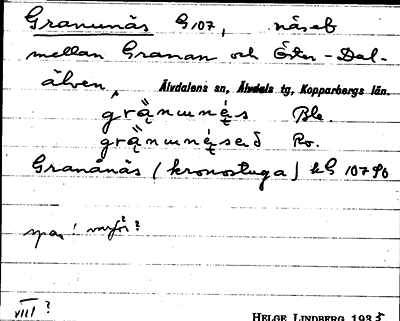 Granunäs G 107, näset
mellan Granan och Öster-Dal-
älven, Älvdalens sn, Älvdals tg, Kopparbergs län.
Ble.
Ro.
Granånäs (kronostuga) hG 107 90
varför?
VIII ?
HELGE LINDBERG 1935